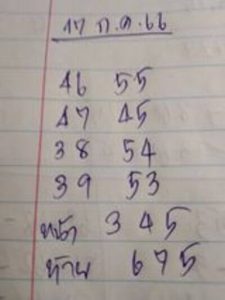 17 ก.ค.66
46 55
47 45
38 54
39 53
หน้า 345
ท้าย 675